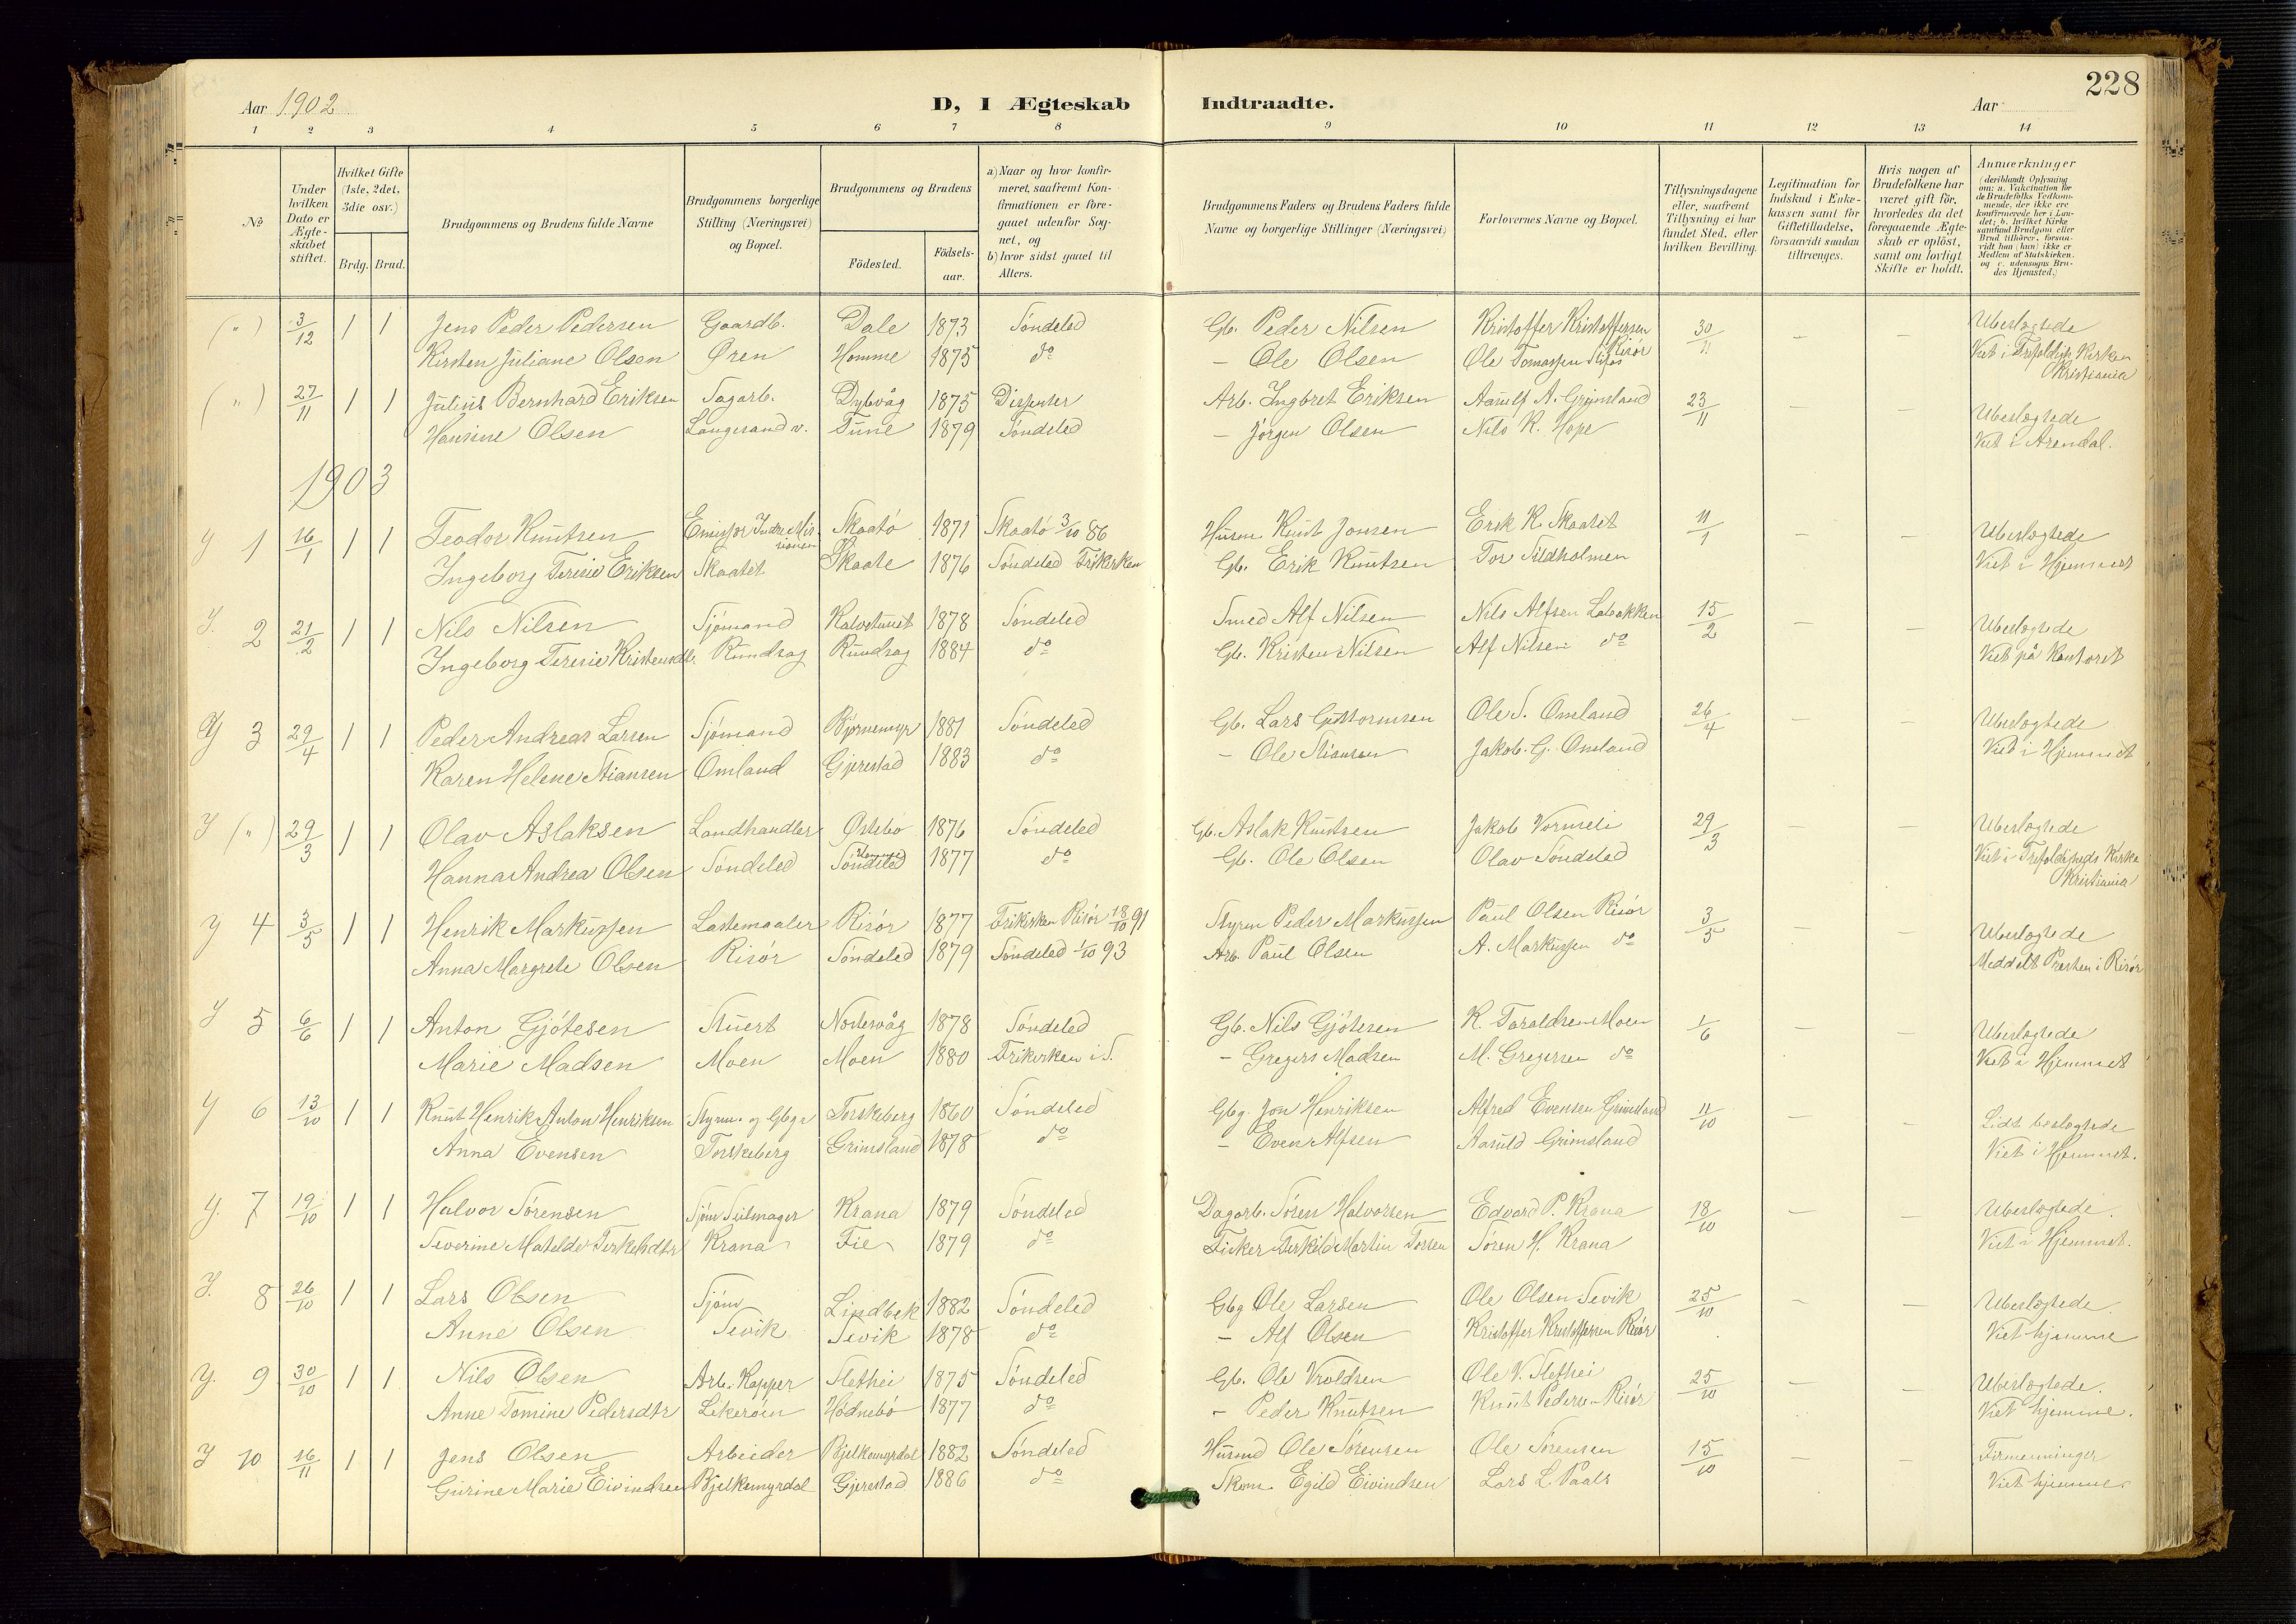 228
Aar 1902
D, I Ægteskab Indtraadte.
Aar
1 2 3 4 5 6 7 8 9 10 11 12 13 14
No
Under hvilken Dato er Ægteskabet stiftet.
Hvilket Gifte (1ste, 2det, 3die osv.)
Brdg. Brud.
Brudgommens og Brudens fulde Navne
Brudgommens borgerlige Stilling (Næringsvei) og Bopæl.
Brudgommens og Brudens
Födested.
Födselsaar.
a) Naar og hvor konfirmeret, saafremt Konfirmationen er foregaaet udenfor Sognet, og
b) hvor sidst gaaet til Alters.
Brudgommens Faders og Brudens Faders fulde Navne og borgerlige Stillinger (Næringsvei)
Forlovernes Navne og Bopæl.
Tillysningsdagene eller, saafremt Tillysning ei har fundet Sted, efter hvilken Bevilling.
Legitimation for Indskud i Enkekassen samt for Giftetilladelse, forsaavidt saadan tiltrænges.
Hvis nogen af Brudefolkene har været gift för, hvorledes da det foregaaende Ægteskab er oplöst, samt om lovligt Skifte er holdt.
Anmærkninger (deriblandt Oplysning om: a. Vakcination for de Brudefolks Vedkommende, der ikke ere konfirmerede her i Landet; b. hvilket Kirkesamfund Brudgom eller Brud tilhörer, forsaavidt han (hun) ikke er Medlem af Statskirken, og c. udensogns Brudes Hjemsted.)
(") 3/12 1 1 Jens Peder Pedersen Gaardb. Dale 1873 Söndeled Gb. Peder Nilsen Kristoffer Kristoffersen Risör 30/11 — — Ubeslægtede
Kirsten Juliane Olsen Øren Homme 1875 do — Ole Olsen Ole Tomassen Viet i Trefoldigh Kirken Kristiania
(") 27/11 1 1 Julius Bernhard Eriksen Sagarb. Dybvåg 1875 Dissenter Arb. Ingbret Eriksen Aanulf A. Grimsland 23/11 — — Ubeslægtede
Hansine Olsen Langesand v. Tune 1879 Söndeled — Jörgen Olsen Nils K. Hope Viet i Arendal.
1903
1 16/1 1 1 Teodor Knutsen Emissær Indre Missionen Skaatö 1871 Skaatö 3/10 86 Husm. Knut Jonsen Erik K. Skaatet 11/1 — — Ubeslægtede
Ingeborg Teresie Eriksen Skaatet Skaate 1876 Söndeled Frikirken Gb. Erik Knutsen Tor Sildholmen Viet i Hjemmet
2 21/2 1 1 Nils Nilsen Sjömand Kalvetuet 1878 Söndeled Smed Alf Nilsen Nils Alfsen Labakken 15/2 — — Ubeslægtede
Ingeborg Teresie Kristensdtr. Rundsag Rundsag 1884 do Gb. Kristen Nilsen Alf Nilsen do Viet på Kontoret
3 29/4 1 1 Peder Andreas Larsen Sjömand Björnemyr 1881 Söndeled Gb. Lars Guttormsen Ole S. Omland 26/4 — — Ubeslægtede
Karen Helene Stiansen Omland Gjerestad 1883 do — Ole Stiansen Jakob G. Omland Vied i Hjemmet
(") 29/3 1 1 Olav Aslaksen Landhandler Østebö 1876 Söndeled Gb. Aslak Knutsen Jakob Vormeli 29/3 — — Ubeslægtede
Hanna Andrea Olsen Söndeled Söndeled 1877 do Gb. Ole Olsen Olav Söndeled Viet i Trefoldigheds Kirke Kristiania
4 3/5 1 1 Henrik Markussen Lastemaaler Risör 1877 Frikirken Risör 18/10 91 Styrm Peder Markussen Paul Olsen Risör 3/5 — — Ubeslægtede
Anna Margrete Olsen Risör Söndeled 1879 Söndeled 1/10 93 Arb. Paul Olsen A. Markussen do Meddelt Presten i Risör
5 6/6 1 1 Anton Gjötesen Stuert Nordevåg 1878 Söndeled Gb. Nils Gjötesen K. Taraldsen Moen 1/6 — — Ubeslægtede
Marie Madsen Moen Moen 1880 Frikirken i S. — Gregers Madsen M. Gregersen do Viet i Hjemmet
6 13/10 1 1 Knut Henrik Anton Henriksen Styrm. og Gbgr Torskeberg 1860 Söndeled Gbg. Jon Henriksen Alfred Evensen Grimsland 11/10 — — Lidt beslægtede
Anna Evensen Torskeberg Grimsland 1878 do — Even Alfsen Aanuld Grimsland Viet i Hjemmet.
7 19/10 1 1 Halvor Sörensen Sjöm Seilmager Krana 1879 Söndeled Dagarb. Sören Halvorsen Edvard P. Krana 18/10 — — Ubeslægtede.
Severine Matelde Terkelsdtr Krana Fie 1879 do Fisker Terkild Martin Torsen Sören H. Krana Viet i Hjemmet.
8 26/10 1 1 Lars Olsen Sjöm Lindbek 1882 Söndeled Gbg Ole Larsen Ole Olsen Sevik 25/10 — — Ubeslægtede.
Anne Olsen Sevik Sevik 1878 do — Alf Olsen Kristoffer Kristoffersen Risör Viet hjemme
9 30/10 1 1 Nils Olsen Arb. Kapper Slethei 1875 Söndeled Gb. Ole Vroldsen Ole V. Slethei 25/10 — — Ubeslægtede.
Anne Tomine Pedersdtr Lekeröen Hödnebö 1877 do — Peder Knutsen Knut Pedersen Risör Viet hjemme.
10 16/11 1 1 Jens Olsen Arbeider Bjelkemyrdal 1882 Söndeled Husmd Ole Sörensen Ole Sörensen 15/10 — — Firmenninger
Gurine Marie Eivindsen Bjelkemyrdal Gjerestad 1886 do Skom. Egild Eivindsen Lars L. Paals Viet hjemme